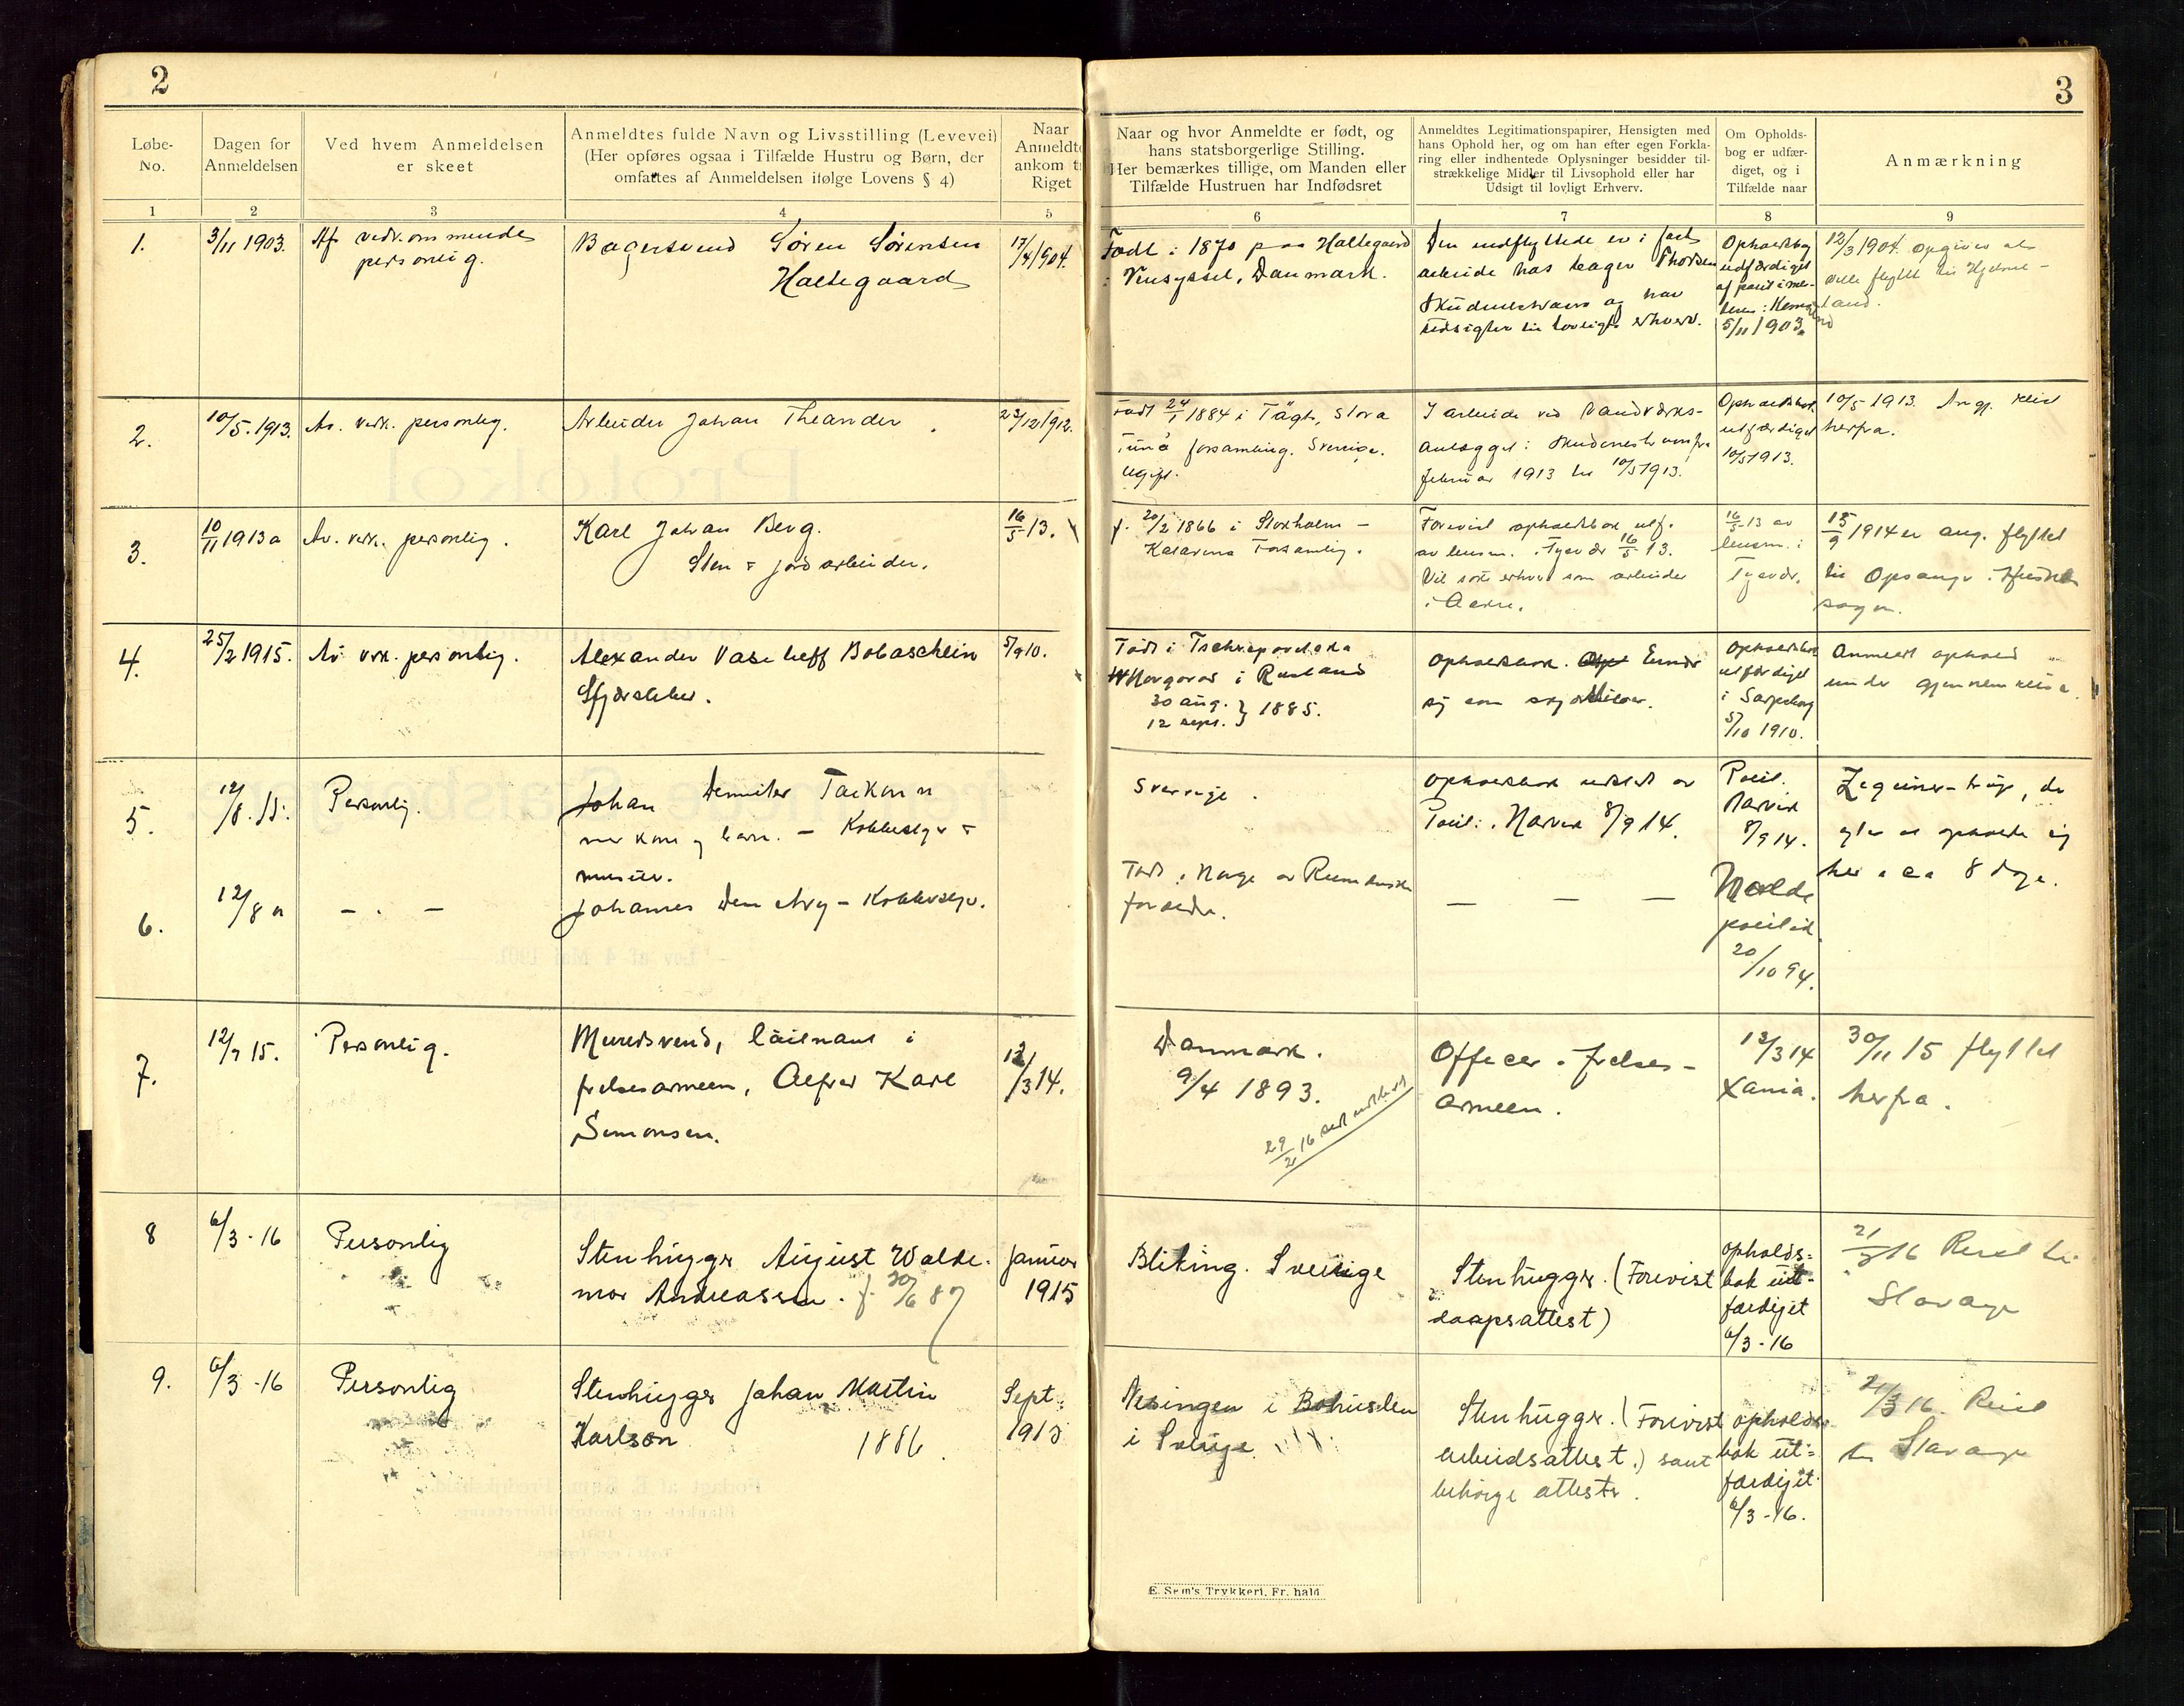 2
Løbe-
No.
Dagen for
Anmeldelsen
Ved hvem Anmeldelsen
er skeet
Anmeldtes fulde Navn og Livsstilling (Levevei)
(Her opføres ogsaa i Tilfælde Hustru og Børn, der
omfattes af Anmeldelsen ifølge Lovens § 4)
Naar
Anmeldte
ankom ti
Riget
1
2
3
4
5
1.
3/11 1903.
Af vedkommende
personlig.
Bagersvend Søren Sørensen
Haltegaard
17/4 1904.
2.
10/5. 1913.
Av. vedk. personlig.
Arbeider Johan Theander.
23/12 1912.
3.
10/11 1913
Av. vedk. personlig.
Karl Johan Berg.
Sten & jordarbeider.
16/5 13.
4.
25/2 1915.
Av vedk. personlig.
Alexander Vasileff Bobaschkin
Skjærsliber.
5/9 10.
5.
12/8. 15.
Personlig.
Johan Demiter Taikon
med kone og barn. – Kobbeslager &
musiker.
6.
12/8
– . –
Johannes Demetry – Kobberslgr.
7.
12/7 15.
Personlig.
Mursvend, løitnant i
frelsesarmeen, Alfred Karl
Simonsen.
12/3 14.
8
6/3 - 16
Personlig
Stenhugger August Walde-
mar Andreassen. f. 30/6 87
Januar
1915
9.
6/3 - 16
Personlig
Stenhugger Johan Martin
Karlson 1886.
Sept.
1913
3
Naar og hvor Anmeldte er født, og
hans statsborgerlige Stilling.
Her bemærkes tillige, om Manden eller
Tilfælde Hustruen har Indfødsret
Anmeldtes Legitimationspapirer, Hensigten med
hans Ophold her, og om han efter egen Forkla-
ring eller indhentede Oplysninger besidder til-
strækkelige Midler til Livsophold eller har
Udsigt til lovligt Erhverv.
Om Opholds-
bog er udfær-
diget, og i
Tilfælde naar
Anmærkning
6
7
8
9
Født i 1870 paa Haltegaard
i Vensyssel, Danmark.
Den indflyttede er i fast
arbeide hos bager Thorsen
Skudeneshavn og har
udsigter til lovligt erhverv.
Opholdsbog
udfærdiget
af politime-
5/11 1903.
12/3 1904. Opgives at
ville flytte til Hjelme-
land.
Født 24/1 1884 i Stora
Tuna forsamling. Sverige.
Ugift.
I arbeide ved Vandværks-
anlægget i Skudeneshavn fra
februar 1913 til 10/5 1913.
Opholdsbok
utfærdiget
10/5 1913.
10/5 1913. Angj. reist
herfra.
f. 20/2 1866 i Stokholm –
Katarina Forsamling.
Forevist opholdsbok utf.
av lensm. i Tysvær 16/5 13.
Vil søke erhverv som arbeider
i Aakre.
16/5 13 av
lensm. i
Tysvær.
15/9 1914 er ang. flyttet
til Opsanger. Husnes
sogn.
Født i
Novgorod i Rusland
30 aug.
12 sept. } 1885.
opholdsbok. Ernær
sig som skjærsliber.
Opholdsbok
utfærdiget
i Sarpsborg
5/10 1910.
Anmeldt ophold
under gjennemreise.
Sverige.
opholdsbok utstedt av
Polit. i Narvik 8/9 14.
Polit.
Narvik
8/9 14.
Zegeuner-trup, de
agter at opholde sig
her i ca 8 dage.
Født i Norge av
foreldre.
– – –
Molde
politik.
20/10 94.
Danmark.
9/4 1893.
29/2 16
Officer i frelses-
armeen.
12/3 14
Xania.
30/11 15 flyttet
herfra.
Bliking. Sverige
Stenhugger. (Forevist
daapsattest)
opholds-
bok ut-
færdiget
6/3 - 16
21/3 16 Reist til
Stavanger
i Bohuslen
i Sverige.
Stenhugger. (Forevist
arbeidsattest.) samt
behørige attester.
opholds-
bok ut-
færdiget
6/3 - 16.
21/3 16. Reist
til Stavanger
E. Sem's Trykkeri, Fr. hald